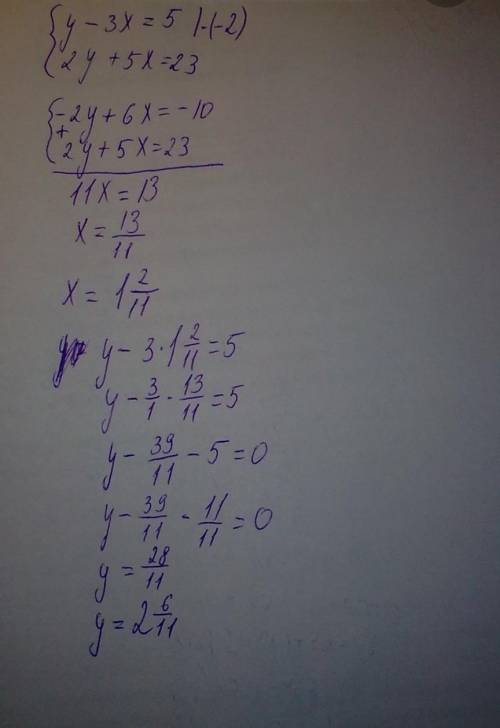 {y - 3x = 5 |·(-2)
2y + 5x = 23
{-2y + 6x = -10
+
2y + 5x = 23
11x = 13
x = 13/11
x = 1 2/11
y - 3 · 1 2/11 = 5
y - 3/1 · 13/11 = 5
y - 39/11 - 5 = 0
y - 39/11 - 11/11 = 0
y = 28/11
y = 2 6/11